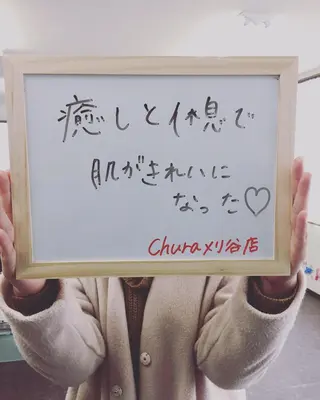 癒しと休息で
肌がきれいに
なった♡
Churaメリ谷店